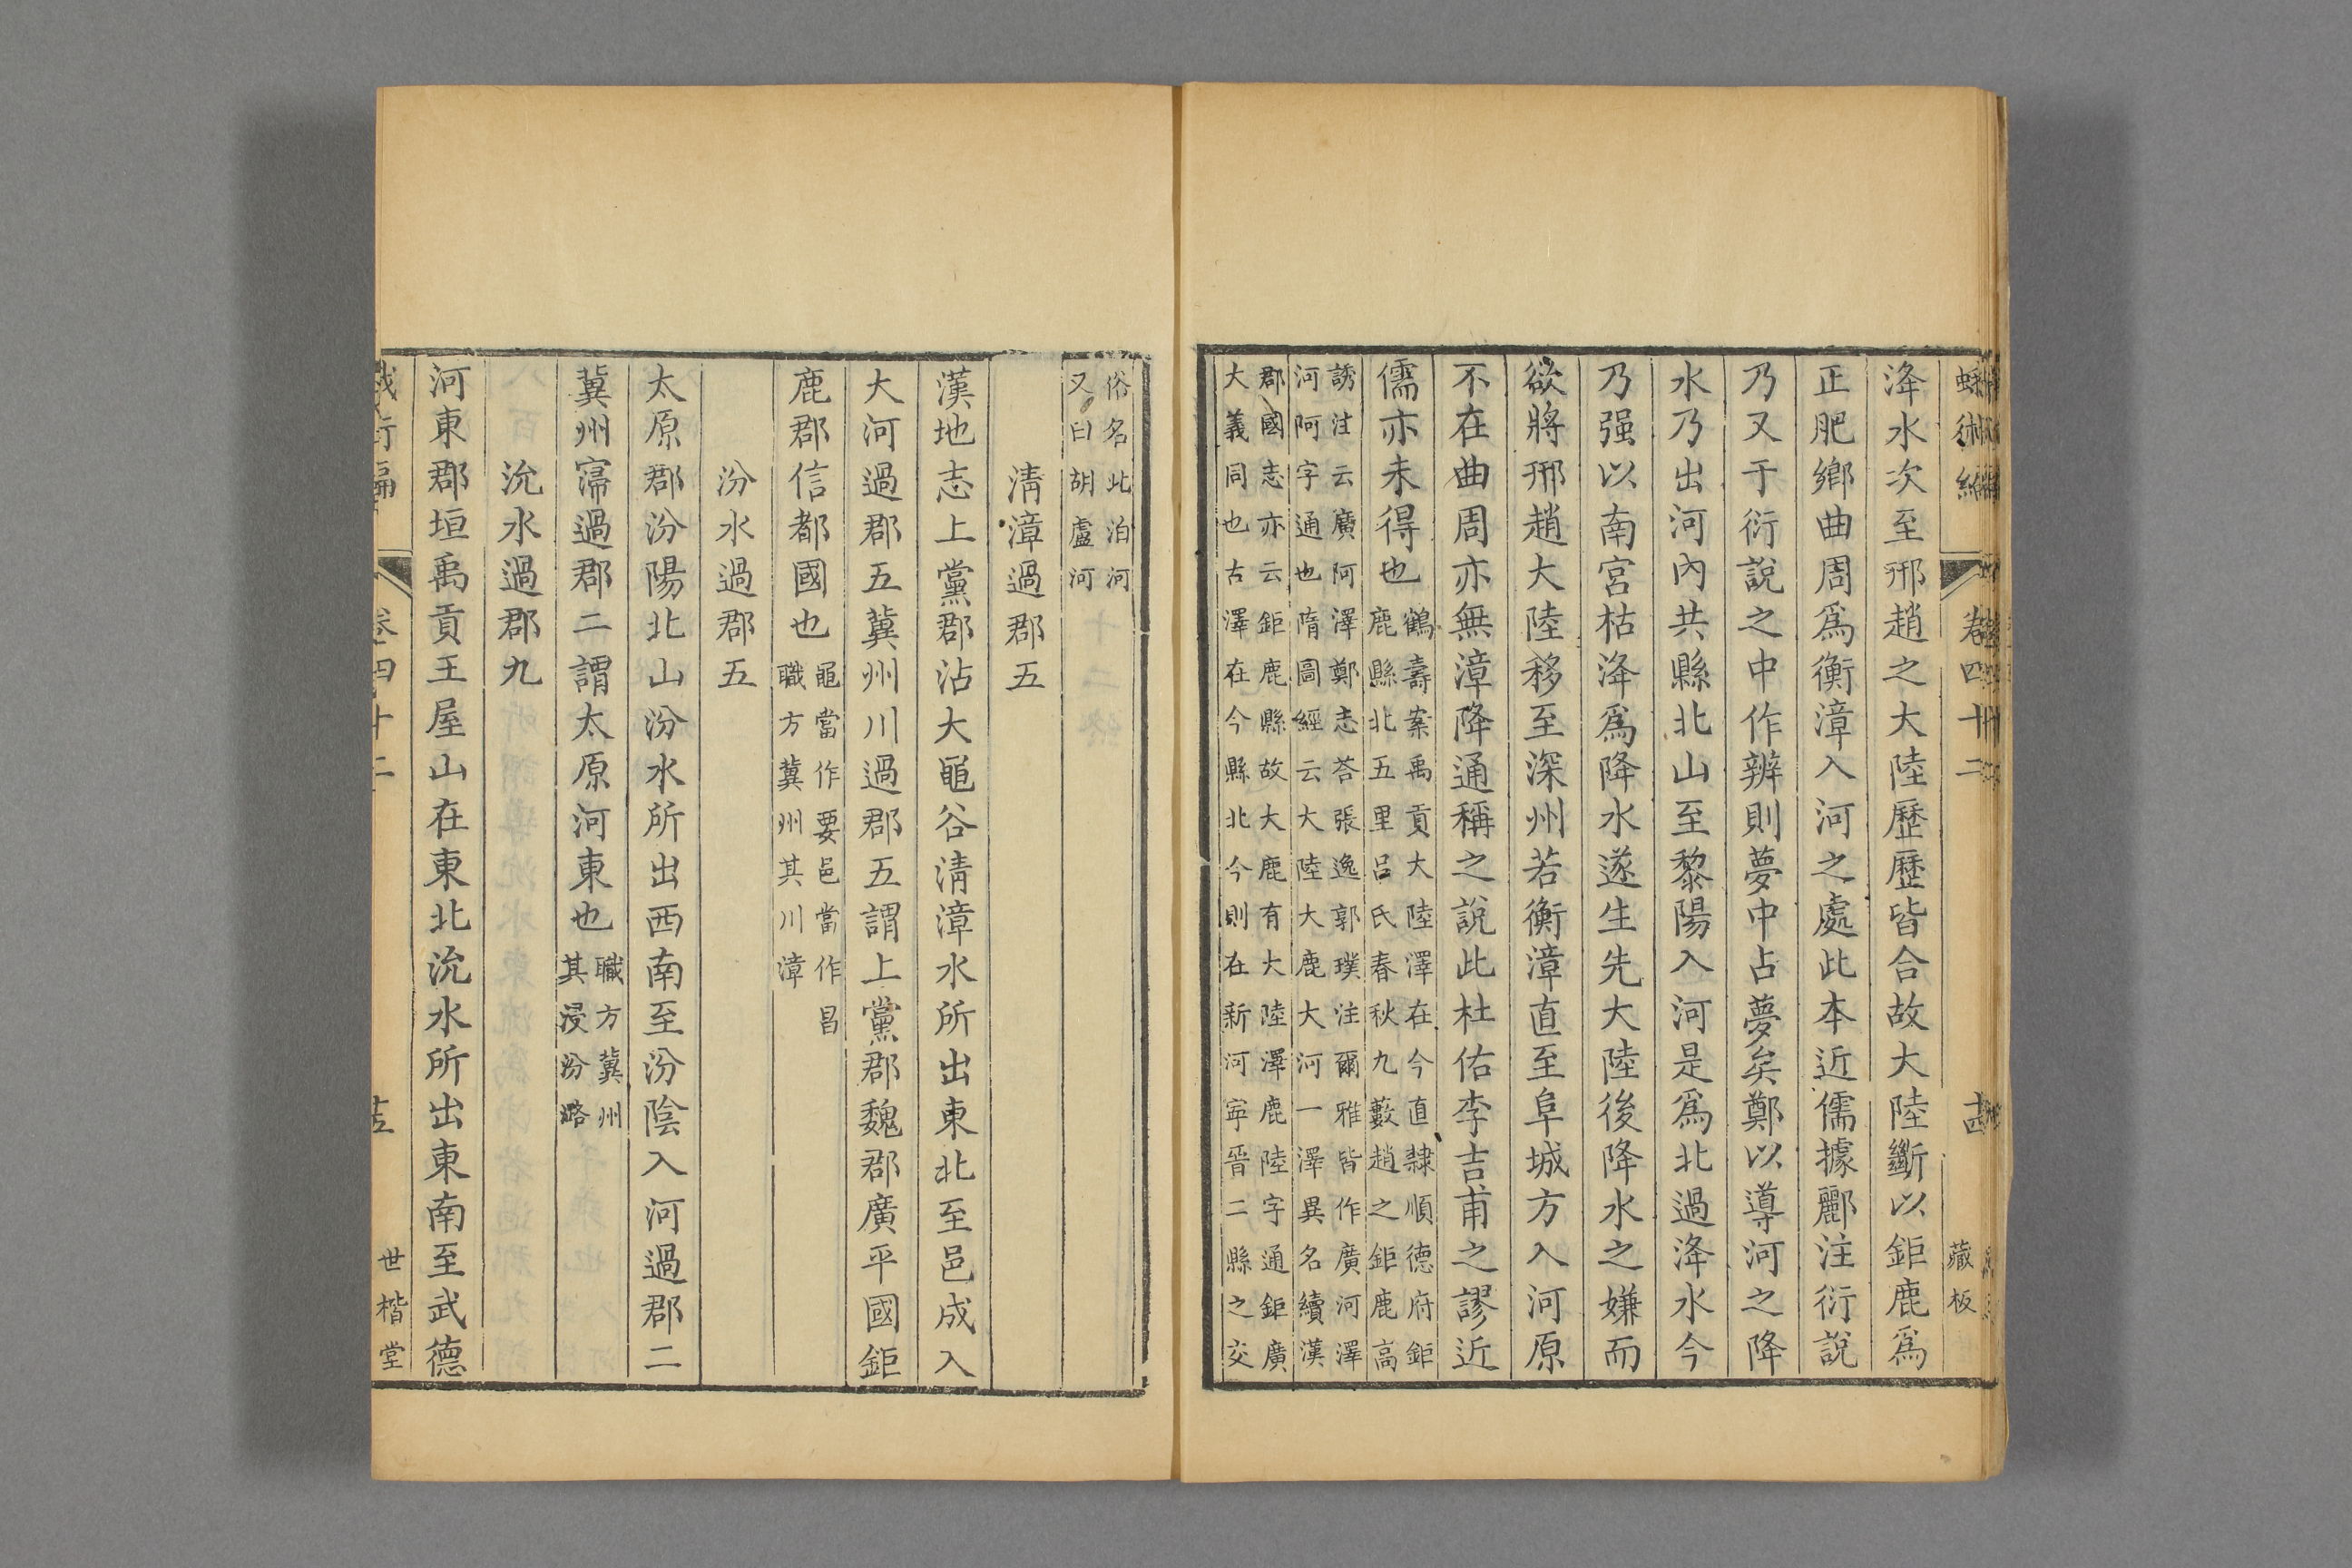 蛾術編
卷四十二
十四
藏板
洚水次至邢趙之大陸歷歷皆合故大陸斷以鉅鹿爲
正肥鄉曲周爲衡漳入河之處此本近儒據酈注衍說
乃又于衍說之中作辨則夢中占夢矣鄭以導河之降
水乃出河內共縣北山至黎陽入河是爲北過洚水今
乃强以南宮枯洚爲降水遂生先大陸後降水之嫌而
欲將邢趙大陸移至深州若衡漳直至阜城方入河原
不在曲周亦無漳降通稱之說此杜佑李吉甫之謬近
儒亦未得也
鶴壽案禹貢大陸澤在今直隸順德府鉅
鹿縣北五里呂氏春秋九藪趙之鉅鹿高
誘注云廣阿澤鄭志荅張逸郭璞注爾雅皆作廣河澤
河阿字通也隋圖經云大陸大鹿大河一澤異名續漢
郡國志亦云鉅鹿縣故大鹿有大陸澤鹿陸字通鉅廣
大義同也古澤在今縣北今則在新河寜晉二縣之交
俗名北泊河
又曰胡盧河
淸漳過郡五
漢地志上黨郡沾大黽谷淸漳水所出東北至邑成入
大河過郡五冀州川過郡五謂上黨郡魏郡廣平國鉅
鹿郡信都國也
黽當作要邑當作昌
職方冀州其川漳
汾水過郡五
太原郡汾陽北山汾水所出西南至汾陰入河過郡二
冀州𡩋過郡二謂太原河東也
職方冀州
其浸汾潞
沇水過郡九
河東郡垣禹貢王屋山在東北沇水所出東南至武德
蛾術編
卷四十二
十五
世楷堂